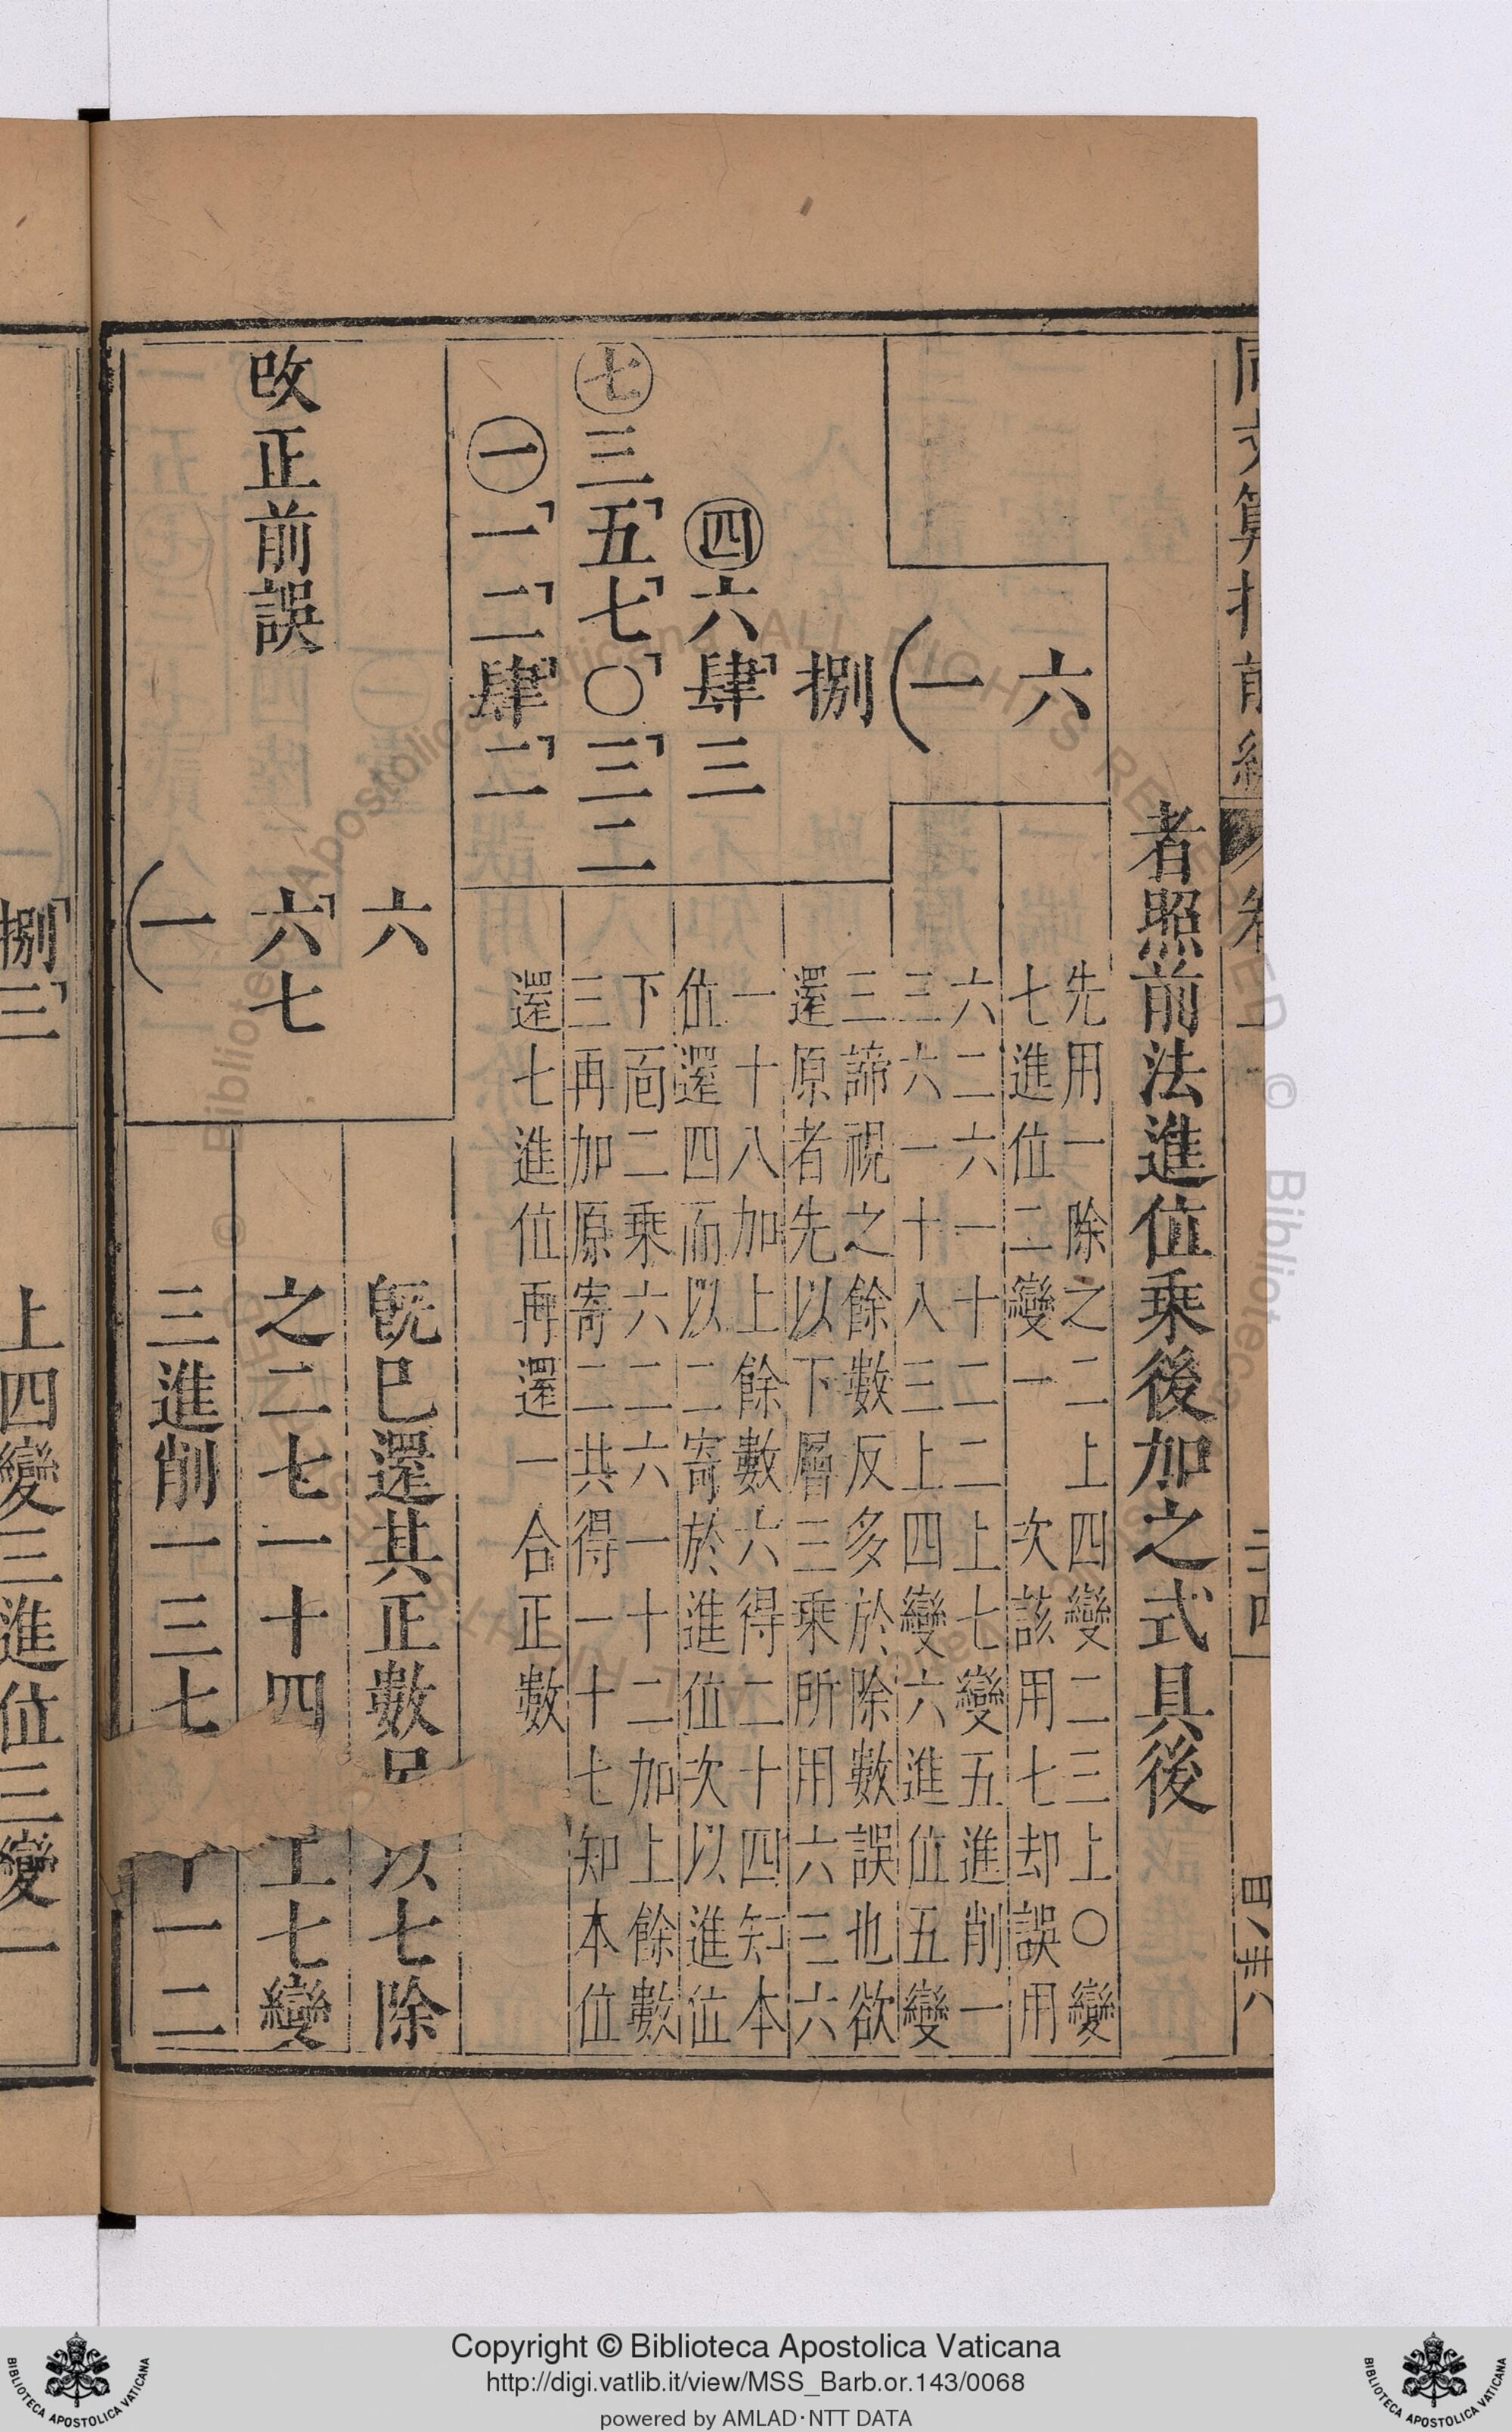 同文算指前編 卷 二四 四八 卅八
者照前法進位乘後加之式具後
先用一除之二上四變二三上〇變
七進位二變一 次該用七却誤用
六二六一十二二上七變五進削一
三六一十八三上四變六進位五變
三諦視之餘數反多於除數誤也欲
還原者先以下層三乘所用六三六
一十八加上餘數六得二十四知本
位還四而以二寄於進位次以進位
下面二乘六二六一十二加上餘數
三再加原寄二共得一十七知本位
還七進位再還一合正數
六
一
捌
四六肆三
七三五七〇三二
一一二肆二
既巳還其正數 以七除
之二七一十四 七變
三進削一三七 一二
六
改正前誤 六七
一
捌三
上四變三進位三變一
Copyright © Biblioteca Apostolica Vaticana
http://digi.vatlib.it/view/MSS_Barb.or.143/0068
powered by AMLAD·NTT DATA
BIBLIOTECA APOSTOLICA VATICANA
BIBLIOTECA APOSTOLICA VATICANA